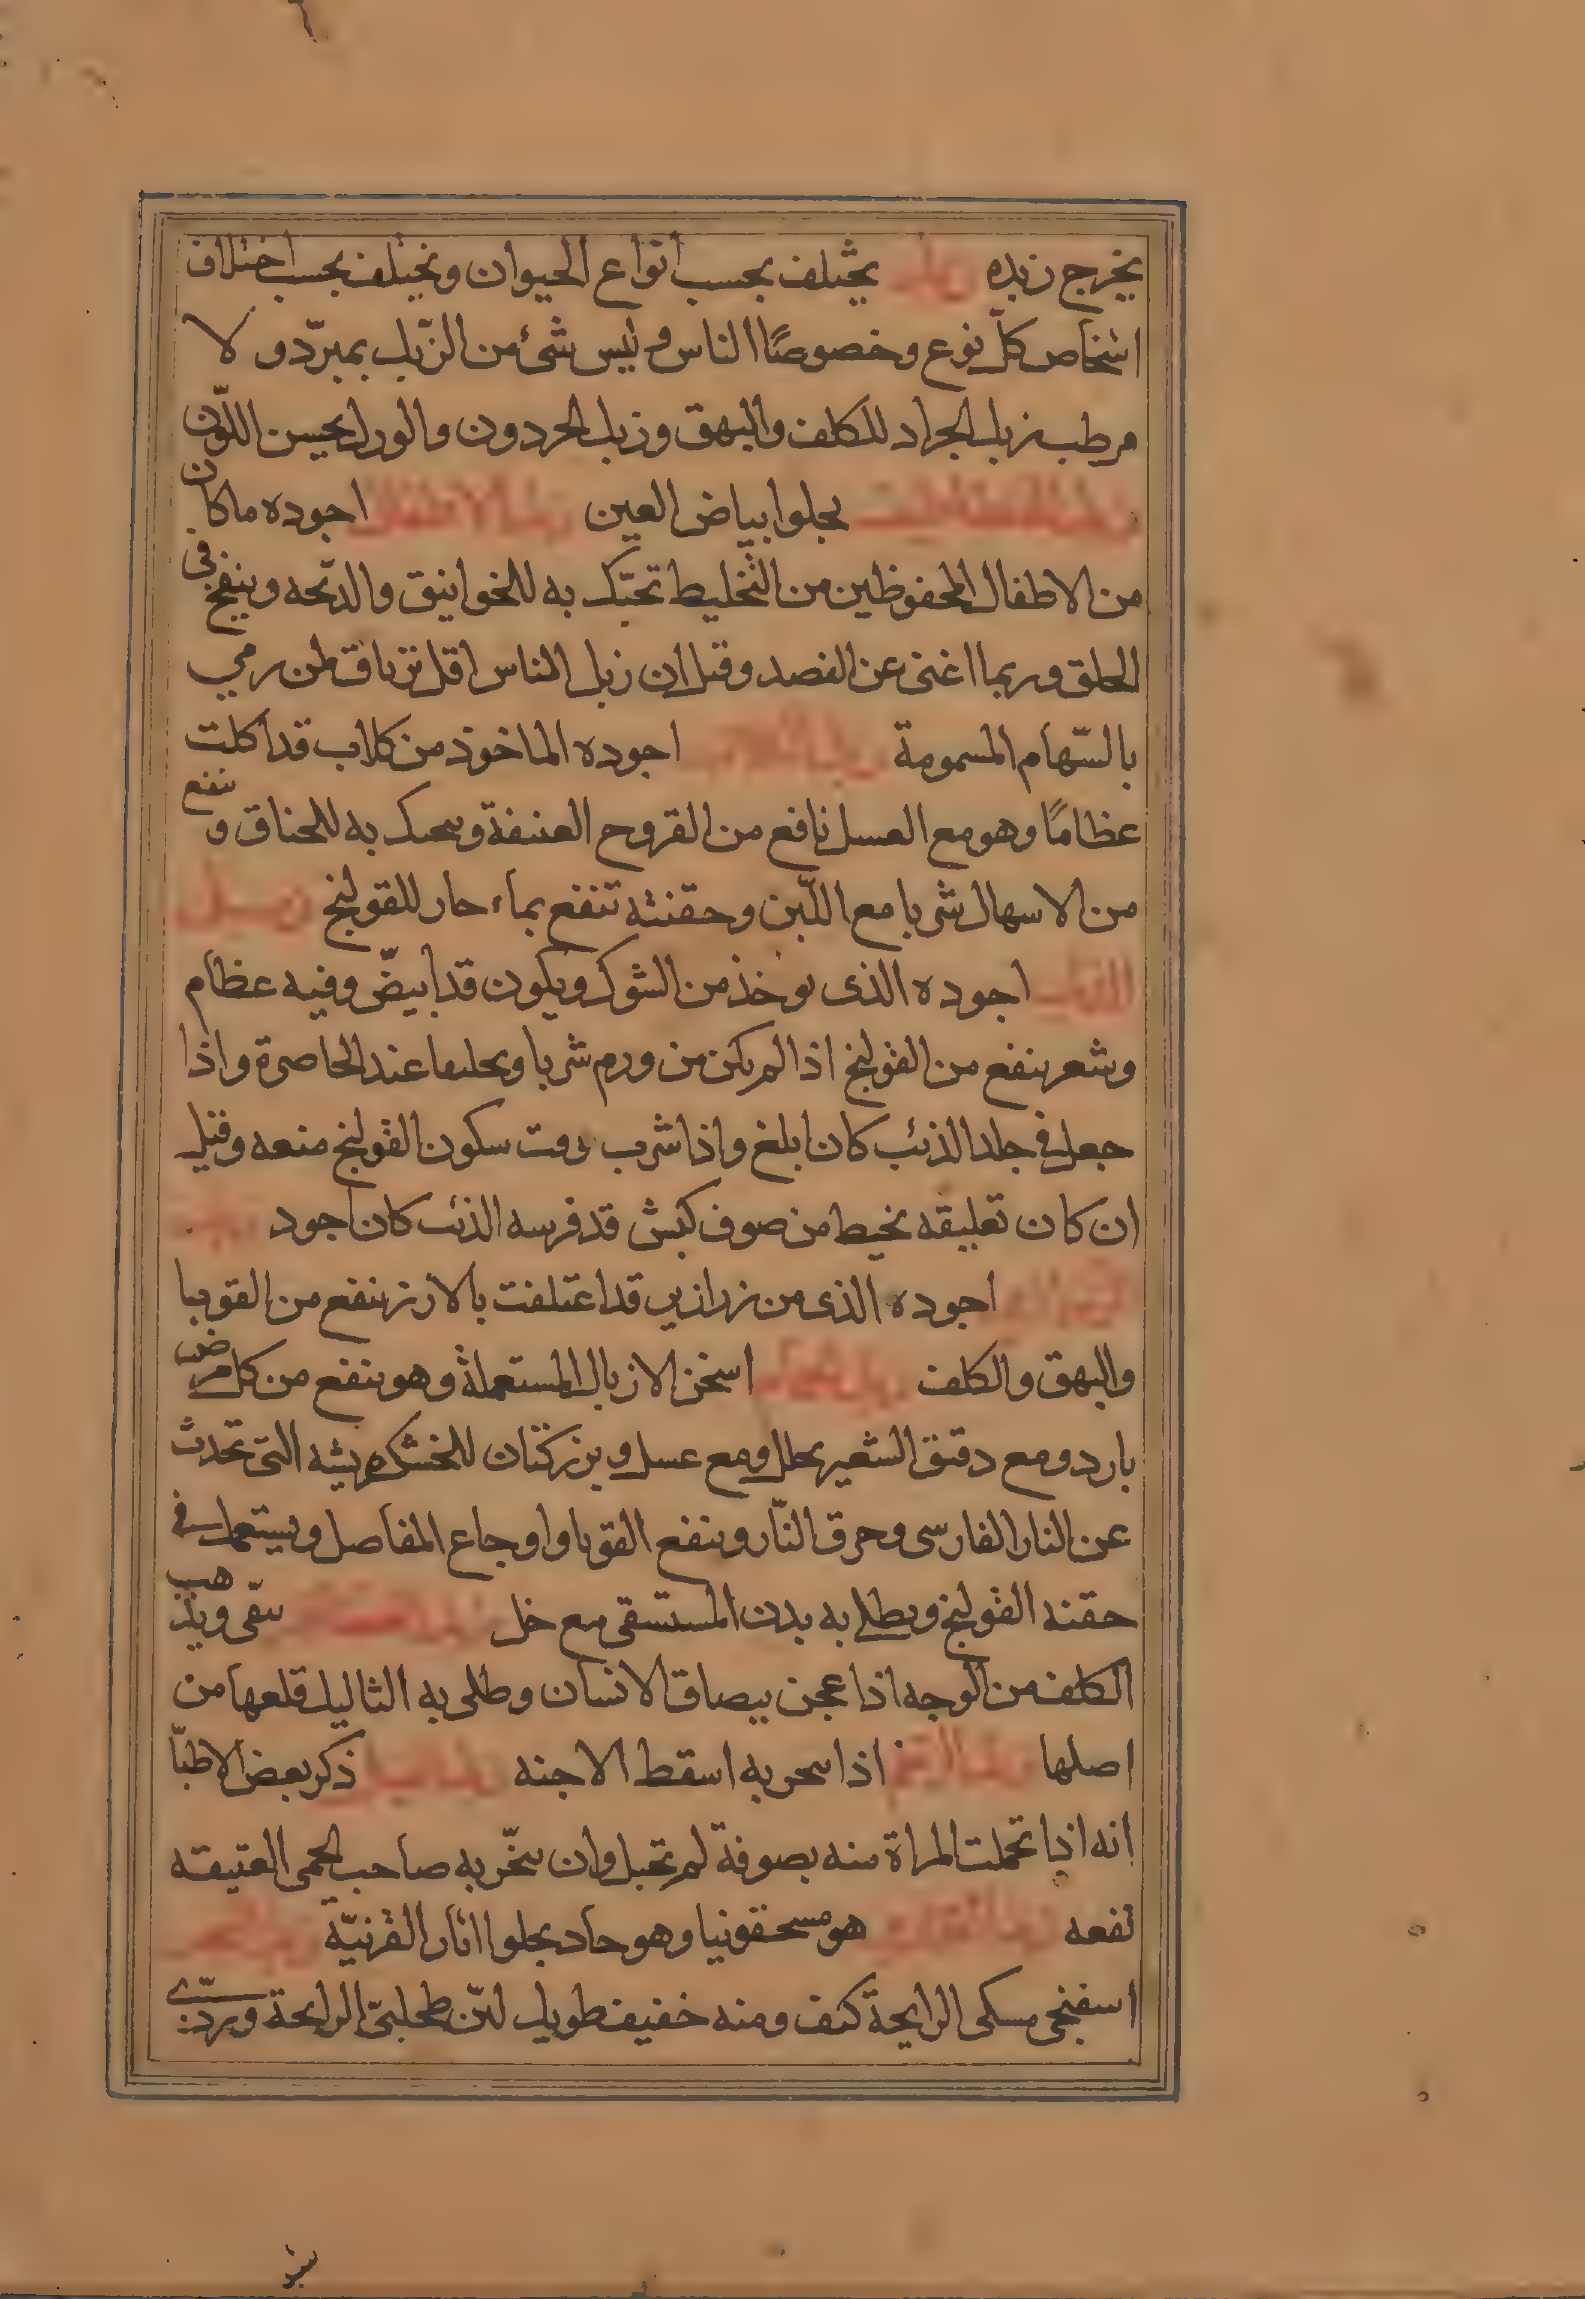 يخرج زبده زبل يختلف بحسب انواع الحيوان ويختلف بحسب اختلاف
اشخاص كلّ نوع وخصوصًا الناس وليس شئ من الزّبل بمبرّد ولا
مرطب زبل الجراد للكلف والبهق وزبل الحردون والورل يحسن اللّون
يجلوا بياض العين زبل الاطفال اجوده ماكان
من الاطفال المحفوظين من التّخليط تحنّك به للخوانيق والذّبحه وينفخ فى
الحلق وربما اغنى عن الفصد وقيل ان زبل الناس اقل ترياق لمن رمي
بالسّهام المسمومة زبل الكلاب اجوده الماخوذ من كلاب قد اكلت
عظامًا وهو مع العسل نافع من القروح العتيقة ويحنك به للخناق وينفع
من الاسهال شربا مع اللّبن وحقنته تنفع بماء حار للقولنج زبل
الذئب اجوده الذى يوخذ من الشوك ويكون قد ابيضّ وفيه عظام
وشعر ينفع من القولنج اذا لم يكن من ورم شربا وتعليقا عند الخاصرة واذا
جعل فى جلد الذئب كان ابلغ واذا شرب وقت سكون القولنج منعه وقيل
ان كان تعليقه بخيط من صوف كبش قد فرسه الذئب كان اجود زبل
الزرازير اجوده الذى من زرازير قد اعتلفت بالارز ينفع من القوبا
والبهق والكلف زبل الحمام اسخن الازبال المستعملة وهو ينفع من كل مرض
بارد ومع دقيق الشعير يحلل ومع عسل وبزر كتان للخشكريشه التى تحدث
عن النار الفارسى وحرق النّار وينفع القوبا واوجاع المفاصل ويستعمل فى
حقنه القولنج ويطلى به بدن المستسقى مع خل ينقّى ويذهب
الكلف من الوجه اذا عجن ببصاق الانسان وطلى به الثاليل قلعها من
اصلها زبل الرخم اذا بخر به اسقط الاجنه زبل الفيل ذكر بعض الاطبّا
انه اذا تحملت المراة منه بصوفة لم تحبل وان بخّر به صاحب الحمى العتيقه
نفعه زبد القوارير هو مسحقونيا وهو حاد يجلوا اثار القرنيّة زبد البحر
اسفنجى مسكى الرايحة كثف ومنه خفيف طويل ليّن طحلبىّ الرايحة وبردّى